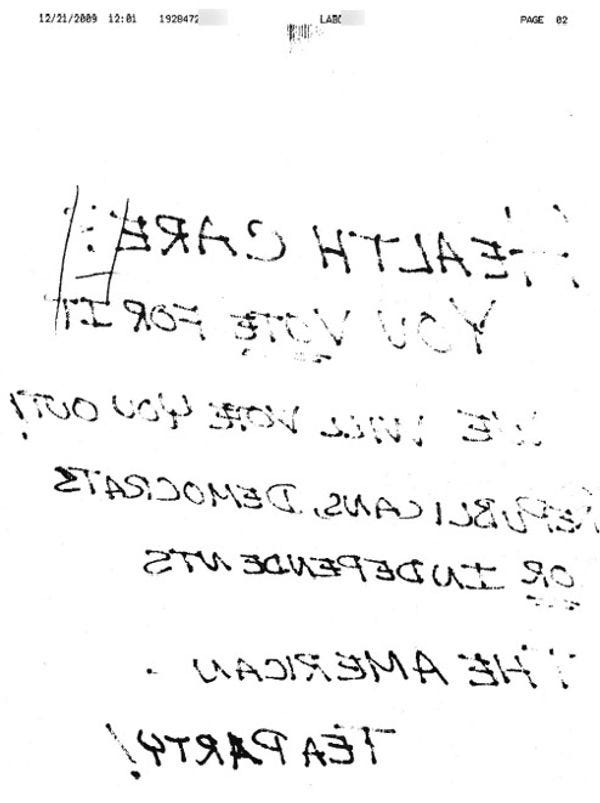 12/21/2009 12:01 1928472 LABO PAGE 02
HEALTH CARE!!
YOU VOTE FOR IT
WE WILL VOTE YOU OUT!
REPUBLICANS, DEMOCRATS
OR INDEPENDENTS
THE AMERICAN
TEA PARTY!